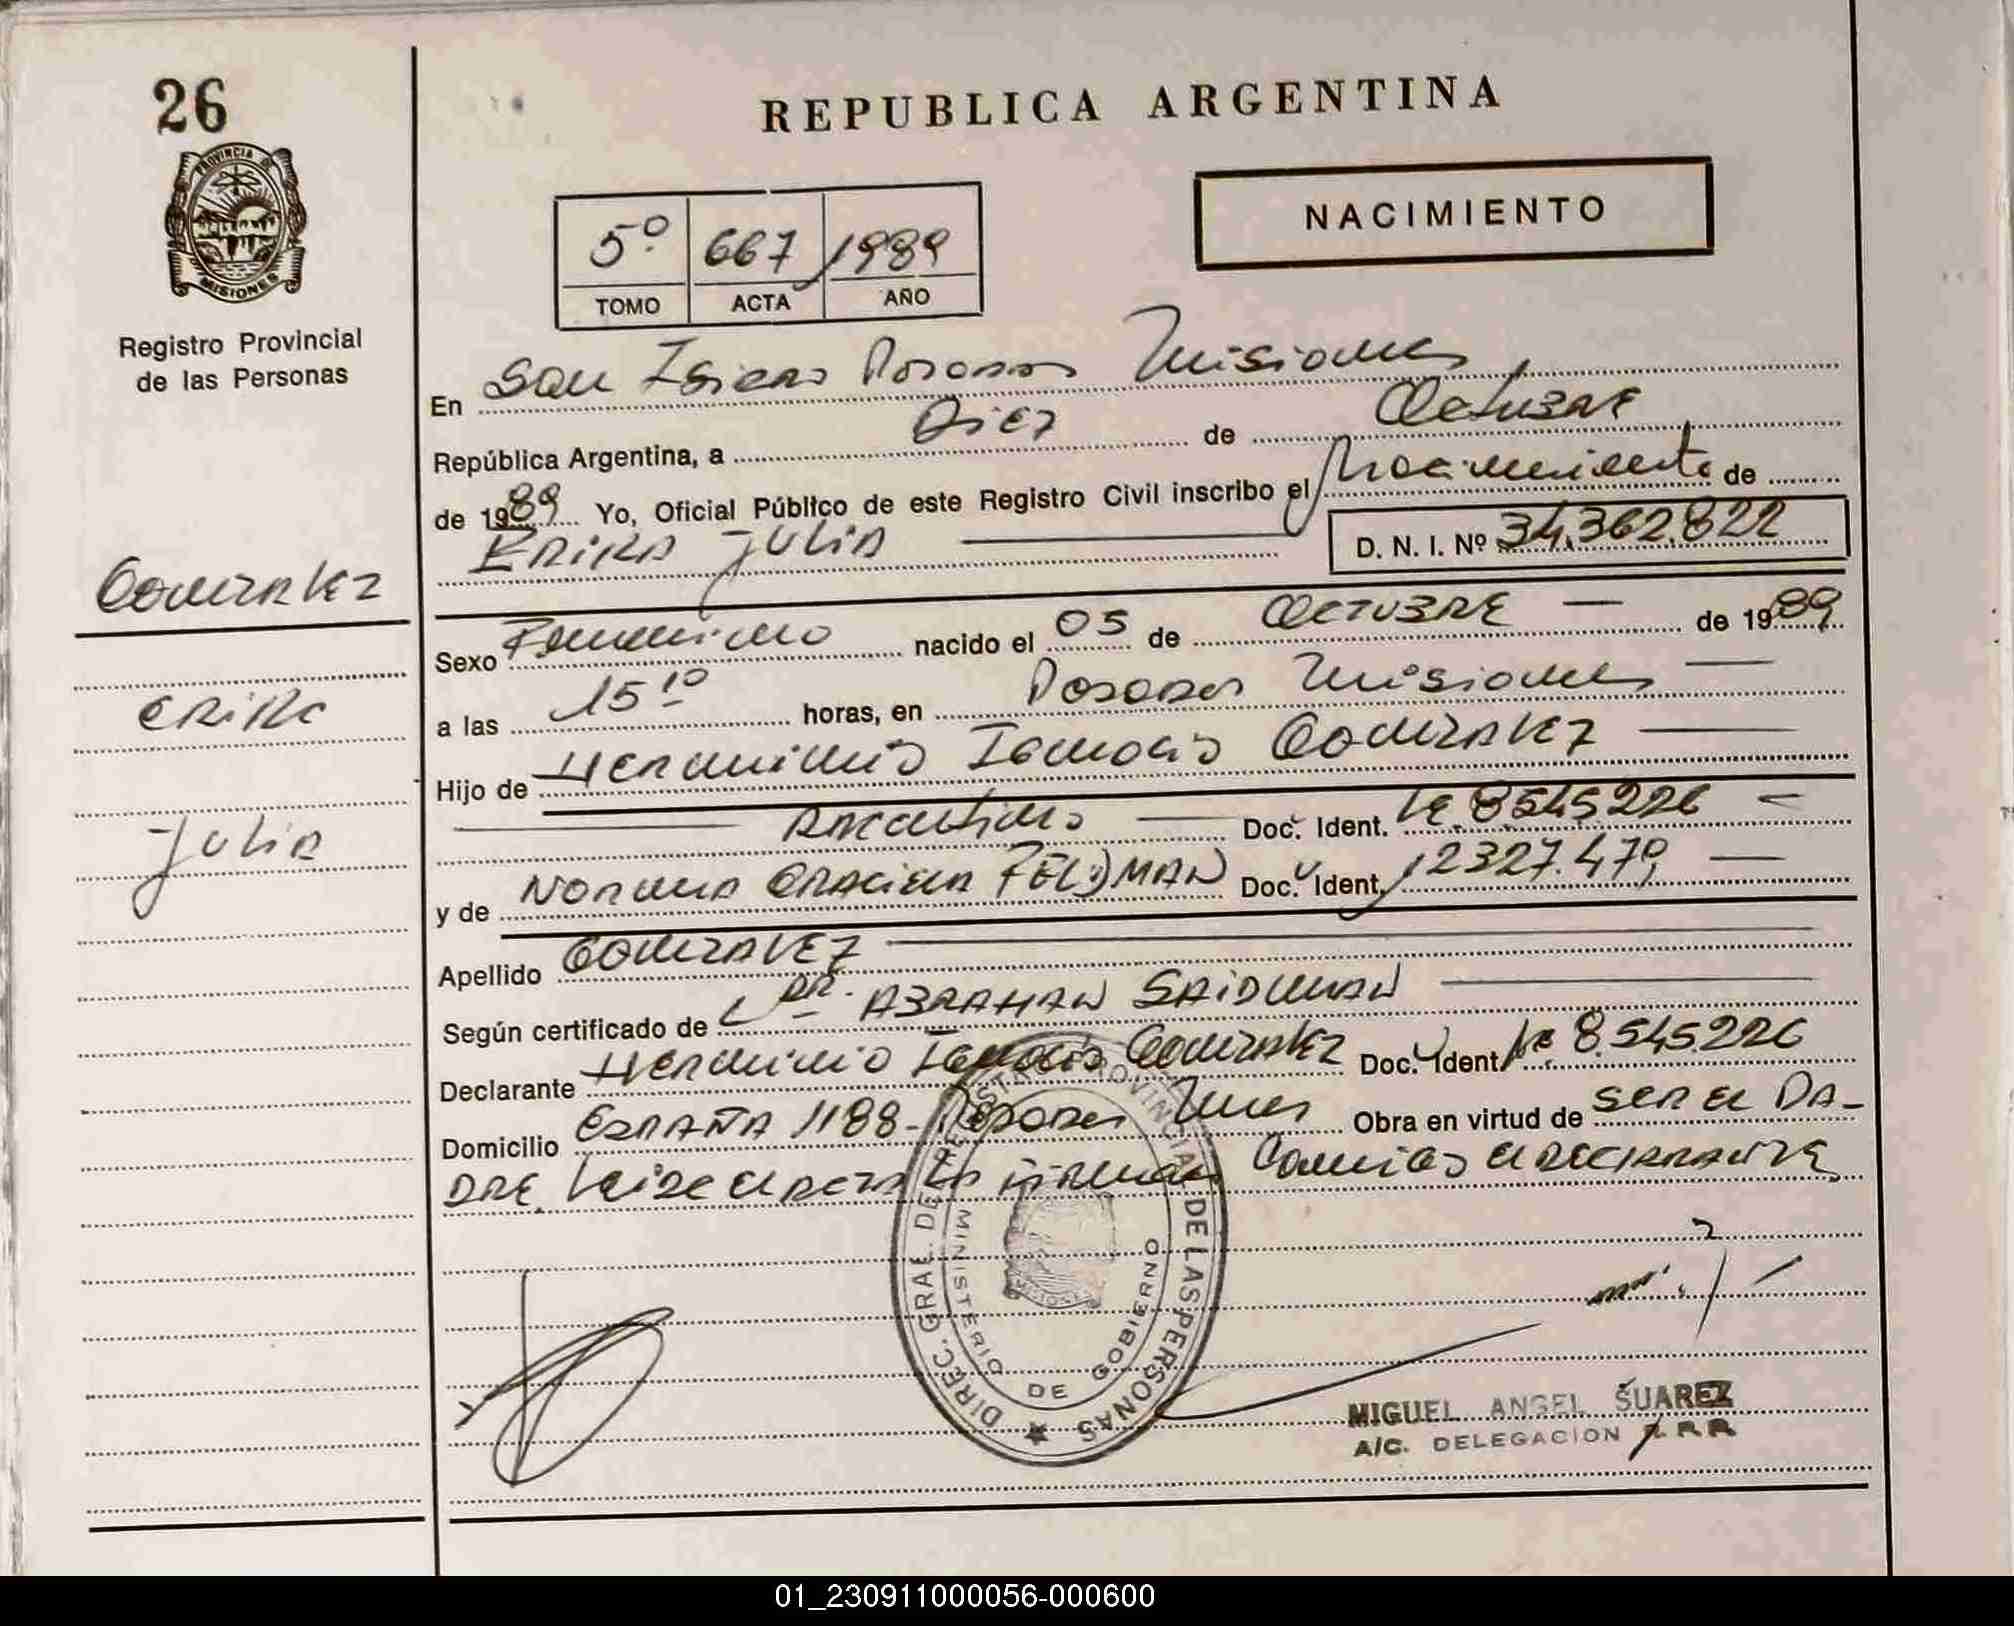 26
REPUBLICA ARGENTINA
PROVINCIA DE
MISIONES
NACIMIENTO
5º 667 1989
TOMO ACTA AÑO
Registro Provincial
de las Personas
En San Isidro Posadas Misiones
República Argentina, a Diez de Octubre
de 1989 Yo, Oficial Público de este Registro Civil inscribo el Nacimiento de
ERIKA JULIA D. N. I. Nº 34.362.822
GONZALEZ
ERIKA
JULIA
Sexo Femenino nacido el 05 de OCTUBRE de 1989
a las 15 10 horas, en Posadas Misiones
Hijo de Herminio Ignacio GONZALEZ
Argentino Doc. Ident. Le 8.545.226
y de NORMA GRACIELA FELDMAN Doc. Ident. 12327.479
Apellido GONZALEZ
Según certificado de DR. ABRAHAN SAIDMAN
Declarante Herminio Ignacio GONZALEZ Doc. Ident. Le 8.545.226
Domicilio ESPAÑA 1188 - Posadas Mnes Obra en virtud de SER EL PA-
DRE. Leida el acta la firma Conmigo el DECLARANTE
DIREC. GRAL. DE REGISTRO PROVINCIAL DE LAS PERSONAS
MINISTERIO DE GOBIERNO
MISIONES
MIGUEL ANGEL SUAREZ
A/C. DELEGACION
01_230911000056-000600